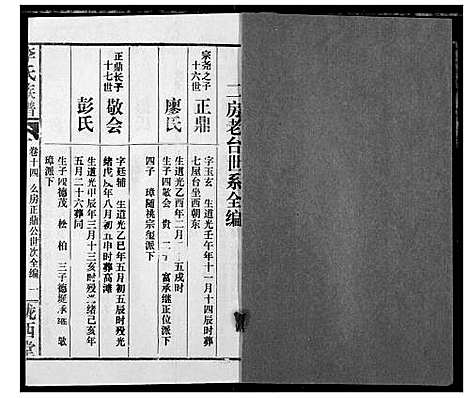 二房老台世系全编
宗尧之子
十六世
正鼎
字玉玄 生道光壬午年十一月十四辰时葬
七屋台坐西朝东
廖氏
生道光乙酉年二月二 五戌时
生子四敬会 贵 二 富承继正位下
四子 璋随祧宗玺派下
正鼎长子
十七世
敬会
字廷辅 生道光乙巳年五月初五辰时殁光
绪戊 年八月初五申时葬高滩
彭氏
生道光甲辰年三月十三亥时殁光绪己亥年
五月二十六葬同
生子四德茂 松 柏 三子德 承 敬
璋派下
李氏族谱
卷十四 么房正鼎公世次全编 一
陇西堂